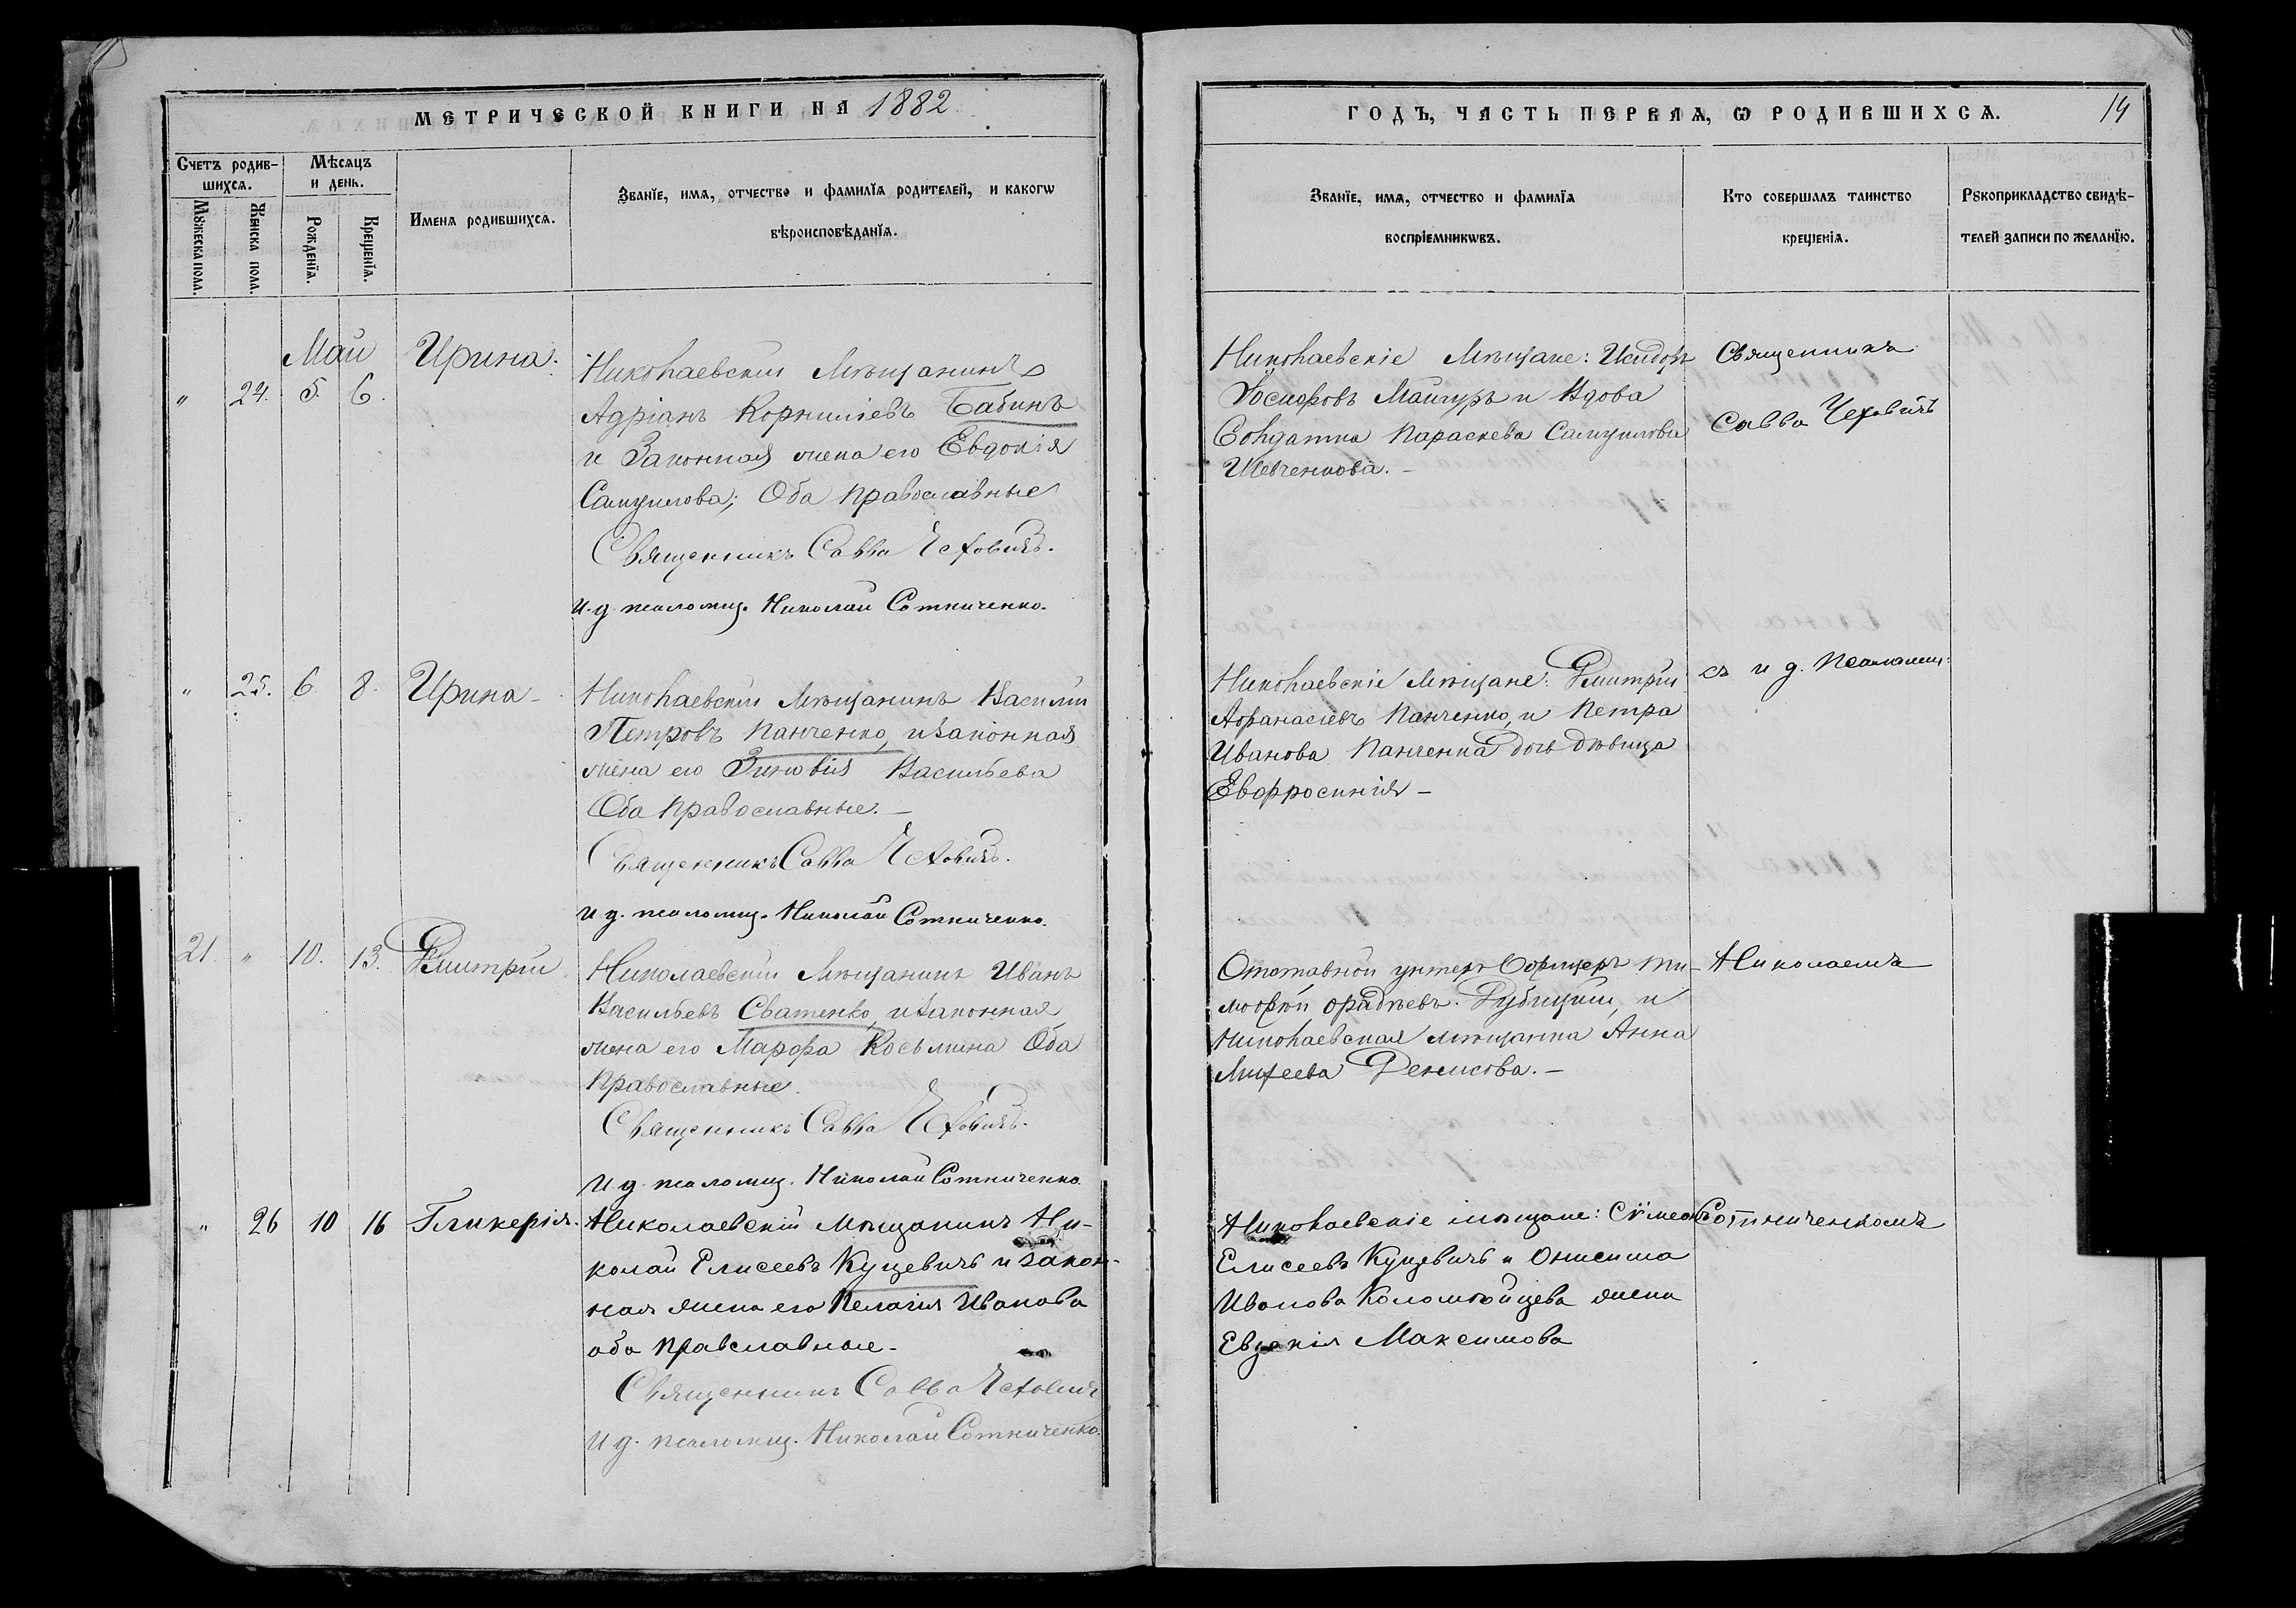 МЕТРИЧЕСКОЙ КНИГИ НА 1882
Счетъ родив-
шихсѧ.
Мѣсѧцъ
и день.
Мꙋжеска пола.
Женска пола.
Рожденїѧ.
Крещенїѧ.
Имена родившихсѧ.
Званїе, имѧ, отчество и фамилїѧ родителей, и какогѡ
вѣроисповѣданїѧ.
Май
" 24. 5. 6. Ирина.
Николаевский Мѣщанинъ
Адріанъ Корниліевъ Бабинъ
и Законная жена его Евдокія
Самуилова; Оба Православные
Священникъ Савва Чеховичъ.
И. д. псаломщ. Николай Сотниченко.
" 25. 6. 8. Ирина
Николаевский Мѣщанинъ Василий
Петровъ Панченко, и законная
жена его Зиновія Васильева
Оба Православные.
Священникъ Савва Чеховичъ.
И д. псаломщ. Николай Сотниченко.
21. " 10. 13. Дмитрий
Николаевский Мѣщанинъ Иванъ
Васильевъ Сватенко, и законная
жена его Марфа Косьмина Оба
Православные.
Священникъ Савва Чеховичъ.
И д. псаломщ. Николай Сотниченко.
" 26 10 16 Гликерія.
Николаевскій Мѣщанинъ Ни-
колай Елисеевъ Куцевичъ и закон-
ная жена его Пелагия Иванова
оба Православные.
Священникъ Савва Чеховичъ
И д. псаломщ. Николай Сотниченко.
ГОДЪ, ЧАСТЬ ПЕРВАѦ, Ѡ РОДИВШИХСѦ. 14
Званїе, имѧ, отчество и фамилїѧ
воспрїемникѡвъ.
Кто совершалъ таинство
крещенїѧ.
Рꙋкоприкладство свидѣ-
телей записи по желанїю.
Николаевскіе Мѣщане: Исидоръ
Мангуръ и Вдова
Солдатка Параскева Самуилова
Шевченкова.
Священникъ
Савва Чеховичъ
Николаевскіе Мѣщане: Дмитрий
Афанасіевъ Панченко, и Петра
Иванова Панченка дочь дѣвица
Евфросинія
съ и д. Псаломщ.
Отставной унтеръ Офицеръ Ти-
мофѣй Фадѣевъ Дубицкий, и
Николаевская мѣщанка Анна
Михеева Денисова.
Николаемъ
Николаевскіе мѣщане: Сѵмеонъ
Елисеевъ Куцевичъ и Онисима
Иванова Коломойцева жена
Евдокія Максимова
Сотниченкомъ